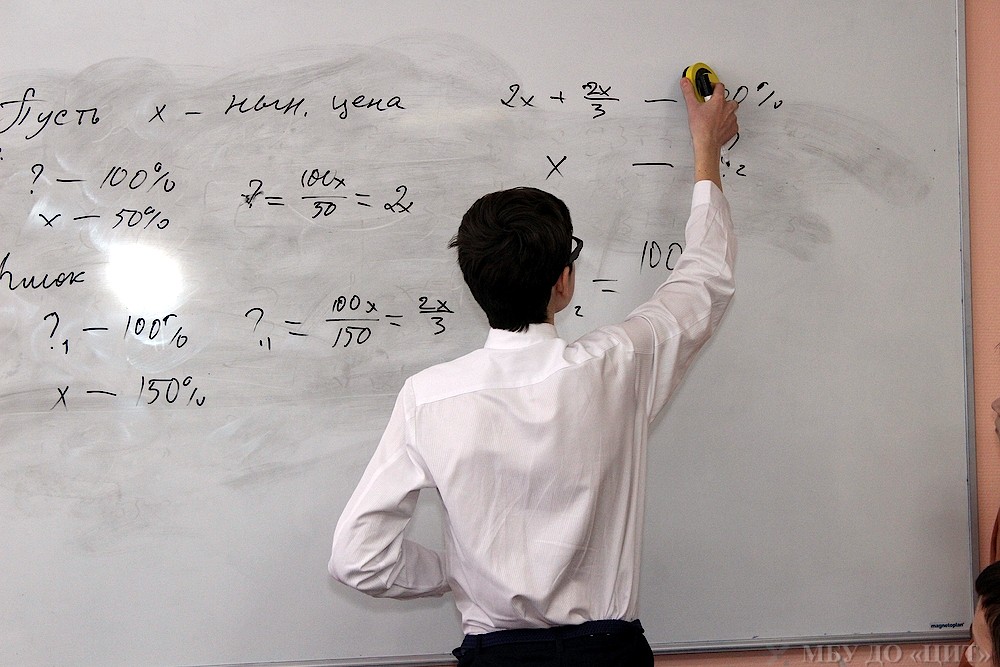 Пусть x – нын. цена
? – 100%
x – 50%
? = 100x/50 = 2x
?₁ – 100%
x – 150%
?₁₁ = 100x/150 = 2x/3
2x + 2x/3 – 00%
x –
= 100
magnetoplan
МБУ ДО «ЦИТ»